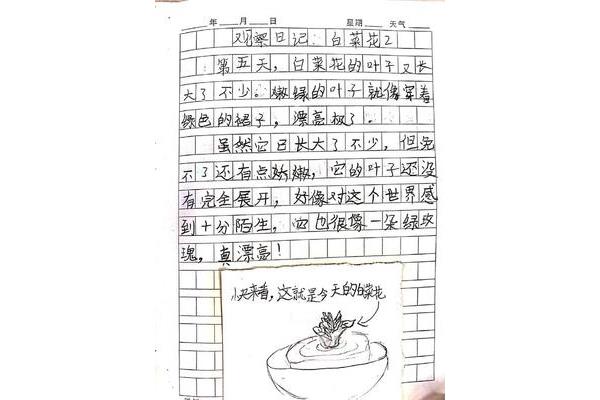 年 月 日 星期 天气
观察日记：白菜花2
第五天，白菜花的叶子又长
大了不少。嫩绿的叶子就像穿着
绿色的裙子，漂亮极了。
虽然它已长大了不少，但免
不了还有点娇嫩，它的叶子还没
有完全展开，好像对这个世界感
到十分陌生。它也很像一朵绿玫
瑰，真漂亮！
快来看，这就是今天的白菜花